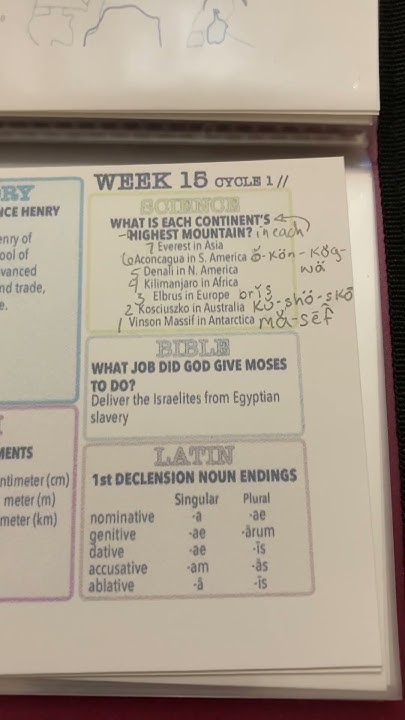 RY
NCE HENRY
enry of
ool of
vanced
nd trade,
e.
MENTS
ntimeter (cm)
meter (m)
meter (km)
WEEK 15 CYCLE 1 //
SCIENCE
WHAT IS EACH CONTINENT'S
HIGHEST MOUNTAIN? in each
7 Everest in Asia
6 Aconcagua in S. America ŏ-kŏn-kŏg-
wä
5 Denali in N. America
4 Kilimanjaro in Africa
3 Elbrus in Europe brŭs
2 Kosciuszko in Australia
1 Vinson Massif in Antarctica mă-sēf
BIBLE
WHAT JOB DID GOD GIVE MOSES
TO DO?
Deliver the Israelites from Egyptian
slavery
LATIN
1st DECLENSION NOUN ENDINGS
Singular Plural
nominative -a -ae
genitive -ae -ārum
dative -ae -īs
accusative -am -ās
ablative -ā -īs